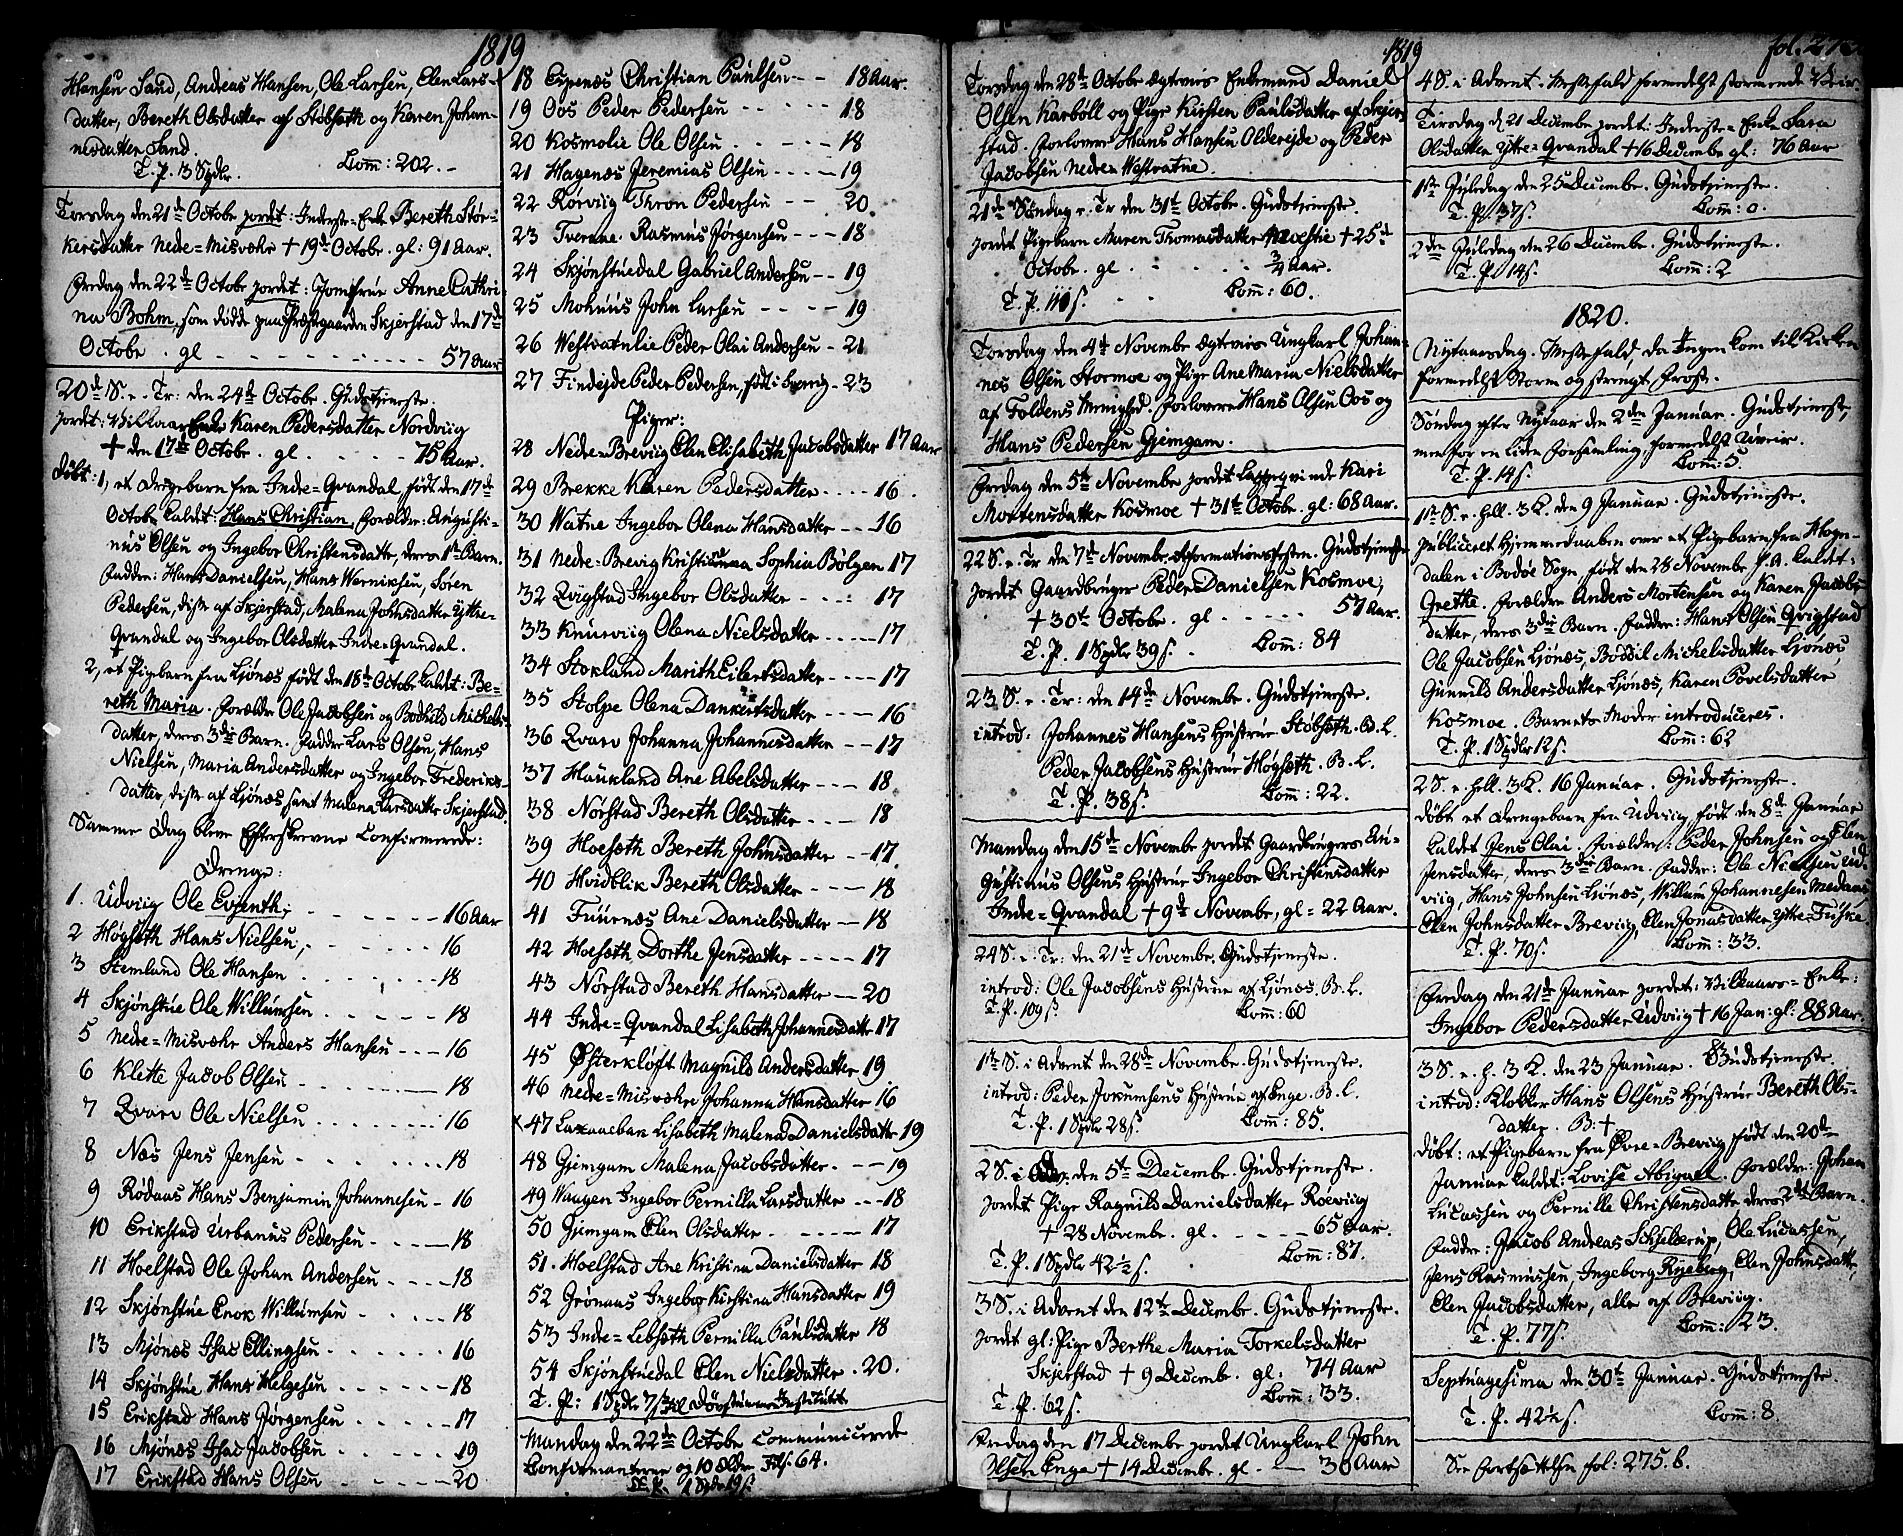 1819
Hansen Sand, Andreas Hansen, Ole Larsen, Elen Lars-
datter, Bereth Olsdatter af Stöbseth og Karen Johan-
nesdatter Sand.
T. P. 3 Spdlr. Com: 202.
Torsdag den 21de October jordet: Inderste-Enke Bereth Stör-
kersdatter Nedre-Misvær + 19de October. gl: 91 Aar.
Fredag den 22de October jordet: Jomfrue Anne Cathri-
na Bohm, som döde paa Præstegaarden Skjerstad den 17de
October. gl - - - 57 Aar
20de S. e. Tr: den 24de October. Gudstjeneste.
jordet: Vilkaars Enke Karen Pedersdatter Nordviig
+ den 17de October. gl - - - 75 Aar.
Döbt: 1, et Drengebarn fra Indre-Qvandal, födt den 17de
October kaldet: Hans Christian, forældre: Augusti-
nus Olsen og Ingebor Christensdatter, deres 1ste Barn.
Fadder: Hans Danielsen, Hans Werniksen, Sören
Pedersen, disse af Skjerstad, Malena Johnsdatter Yttre-
Qvandal og Ingebor Olsdatter Indre-Qvandal.
2, et Pigebarn fra Ljönes födt den 18de October kaldet: Be-
reth Maria. forældre Ole Jacobsen og Bodhild Michels-
datter, deres 3die Barn. Fadder Lars Olsen, Hans
Nielsen, Maria Andersdatter og Ingebor Frederiks-
datter, disse af Ljönes samt Malena Larsdatter Skjerstad.
Samme Dag bleve Efterskrevne Confirmerede:
Drenge:
1. Udviig Ole Evjenth; - - - 16 Aar
2 Högseth Hans Nielsen, - - - 16
3 Stemland Ole Hansen - - - 18
4 Skjönstue Ole Willumsen - - - 18
5 Nedre-Misvær Anders Hansen - - - 16
6 Klette Jacob Olsen - - - 18
7 Qvarv Ole Nielsen - - - 16
8 Næs Jens Jensen - - - 18
9 Rödaas Hans Benjamin Johannesen - 16
10 Erikstad Urbanus Pedersen - - - 18
11 Hoelstad Ole Johan Andersen - - - 18
12 Skjönstue Enok Willumsen - - - 18
13 Mjönes Isac Ellingsen - - - 16
14 Skjönstue Hans Helgesen - - - 18
15 Erikstad Hans Jörgensen - - - 17
16 Mjönes Isac Jacobsen - - - 19
17 Erikstad Hans Olsen - - - 20
18 Espenæs Christian Paulsen - - 18 Aar.
19 Oos Peder Pedersen - - - 18
20 Kosmolie Ole Olsen - - - 18
21 Hagenæs Jeremias Olsen - - - 19
22 Rörviig Thron Pedersen - - 20
23 Tveraae Rasmus Jörgensen - - - 18
24 Skjönstuedal Gabriel Andersen - - 19
25 Mohuus John Larsen - - - 19
26 Westvatnlie Peder Olai Andersen - 21
27 Findejde Peder Pedersen, födt i Sverrig - 23
Piger:
28 Nedre-Breviig Elen Elisabeth Jacobsdatter 17 Aar
29 Brekke Karen Pedersdatter - - - 16.
30 Watne Ingebor Olena Hansdatter - - 16
31 Nedre-Brevig Kristianna Sophia Bölgen 17
32 Qvigstad Ingebor Olsdatter - - - 17
33 Knusviig Olena Nielsdatter - - - 17
34 Stokland Marith Eilertsdatter - - - 17
35 Stolpe Olena Dankertsdatter - - - 16
36 Qvarv Johanna Johannesdatter - - 17
37 Haukland Ane Abelsdatter - - - 18
38 Nörstad Bereth Olsdatter - - - 18
39 Hoeseth Bereth Johnsdatter - - 17
40 Hvidblik Bereth Olsdatter - - - 18
41 Fuurnæs Ane Danielsdatter - - 18
42 Hoeseth Dorthe Jensdatter - - - 17
43 Nörstad Bereth Hansdatter - - 20
44 Indre-Qvandal Lisabeth Johannesdattr 17
45 Østerklöft Magnild Andersdatter 19
46 Nedre-Misvær Johanna Hansdatter 16
x 47 Laxaaeban Lisabeth Malena Danielsdattr 19
48 Gjemgam Malena Jacobsdatter - - - 19
49 Waagen Ingebor Pernilla Larsdatter - - - 18
50 Gjemgam Elen Olsdatter - - - 17
51. Hoelstad Ane Kristina Danielsdatter 18
52 Grönaas Ingebor Kirstina Hansdatter 19
53 Indre-Lebseth Pernilla Paulsdatter 18
54 Skjönstuedal Elen Nielsdatter - 20.
T. P: 1 Spdlr 7 s til Dövstumme Institutet
Mandag den 22de October Communicerede
Confirmanterne og 10 Ældre. Tils: 64.
T. P. 1 Spdlr 19 s.
1819
Torsdag den 28de October ægteviet Enkemand Daniel
Olsen Karböll og Pige Kirsten Paulsdatter af Skjer-
stad. forlovere Hans Hansen Oldereide og Peder
Jacobsen Nedre Westvatne.
21de Söndag e. Tr den 31te October. Gudstjeneste.
jordet Pigebarn Maren Thomasdatter + 25de
October. gl - - - 3/4 Aar.
T. P. 110 s. Com: 60.
Torsdag den 4de November ægteviet Ungkarl Johan-
nes Olsen Stormoe og Pige Ane Maria Nielsdatter
af Foldens Menighed. Forlovere Hans Olsen Oos og
Hans Pedersen Gjemgam.
Fredag den 5te November jordet Lægdsqvinde Kari
Mortensdatter Kosmoe + 31te October. gl: 68 Aar.
22 S. e. Tr den 7de November. Reformationsfesten. Gudstjeneste
jordet Gaardbruger Peder Danielsen Kosmoe,
+ 30te October. gl - - - 57 Aar.
T. P. 1 Spdlr 39 s. Com: 84
23 S. e. Tr: den 14de November. Gudstjeneste.
introd: Johannes Hansens Hustrue Stöbseth. B. L.
Peder Jacobsens Hustrue Högseth. B. L.
T. P. 38 s. Com: 22.
Mandag den 15de November jordet Gaardbrugers Au-
gustinus Olsens Hustrue Ingebor Christensdatter
Indre-Qvandal + 9de November, gl = 22 Aar.
24 S. e. Tr: den 21de November. Gudstjeneste.
introd: Ole Jacobsens Hustrue af Ljönes. B. L.
T. P. 109 s. Com: 60
1ste S. i Advent den 28de November. Gudstjeneste.
introd: Peder Jokumsens Hustrue af Enge. B. L.
T. P. 1 Spdlr 28 s. Com: 85.
2 S. i Adv: den 5te December. Gudstjeneste.
jordet Pige Ragnild Danielsdatter Roeviig
+ 28 November. gl. - - - 65 Aar.
T. P. 1 Spdlr 42 1/2 s. Com: 87.
3 S. i Advent den 12te December. Gudstjeneste.
jordet gl: Pige Berthe Maria Torkelsdatter
Skjerstad + 9 December. gl: 74 Aar
T. P. 62 s. Com: 33.
Fredag den 17 December jordet Ungkarl John
Olsen Enge + 14 December. gl - - 30 Aar
fol. 27
4 S. i Advent. Messefald formedelst stormende Veir.
Tirsdag d. 21 December jordet: Inderste-Enke Sara
Olsdatter Yttre-Qvandal + 16 December gl: 76 Aar
1ste Juledag den 25 December. Gudstjeneste.
T. P. 37 s. Com: 0.
2den Juledag den 26 December. Gudstjeneste.
T. P. 14 s. Com: 2
1820.
Nytaarsdag. Messefald, da Ingen kom til Kirken
formedelst Storm og strengt Frost.
Söndag efter Nytaar den 2den Januar. Gudstjeneste,
men for en liden Forsamling, formedelst Uveir.
T. P. 14 s. Com: 5.
1ste S. e. Hell. 3 K. den 9 Januar. Gudstjeneste.
publiceret Hjemmedaaben over et Pigebarn fra Mogn-
dalen i Bodöe Sogn, födt den 28 November f. A. kaldet:
Grethe. forældre Anders Mortensen og Karen Jacobs-
datter, deres 3die Barn. Fadder: Hans Olsen Qvigstad
Ole Jacobsen Ljönes, Boddil Michelsdatter Ljönes,
Gunnild Andersdatter Ljönes, Karen Povelsdatter
Kosmoe. Barnets Moder introduceres.
T. P. 1 Spdlr 12 s. Com: 62
2 S. e. Hell. 3 K. 16 Januar. Gudstjeneste.
döbt et Drengebarn fra Udviig födt den 8de Januar
kaldet Jens Olai. forældre: Peder Johnsen og Elen
Jensdatter, deres 3die Barn. Fadder: Ole Nielsen Ud-
viig, Hans Johnsen Ljönes, Willum Johannesen Medaas,
Elen Johnsdatter Breviig, Elen Jonasdatter Yttre-Fuske
T. P. 70 s. Com: 33.
Fredag den 21de Januar jordet: Vilkaars-Enke:
Ingebor Pedersdatter Udviig + 16 Jan: gl: 88 Aar.
3 S. e. H. 3 K. den 23 Januar. Gudstjeneste
introd: Klokker Hans Olsens Hustrue Bereth Ols-
datter. B: +
döbt: et Pigebarn fra Övre-Breviig födt den 20de
Januar kaldet: Lovise Abigael. forældre: Johan
Lucassen og Pernille Christensdatter deres 2det Barn.
Fadder: Jacob Andreas Schjelderup, Ole Lucassen,
Jens Rasmussen, Ingeborg Rijeberg, Elen Johnsdatter,
Elen Jacobsdatter, alle af Breviig.
T. P. 77 s. Com: 23.
Septuagesima den 30te Januar. Gudstjeneste.
T. P. 42 1/2 s. Com: 8.
See fortsættelsen fol: 275. b.